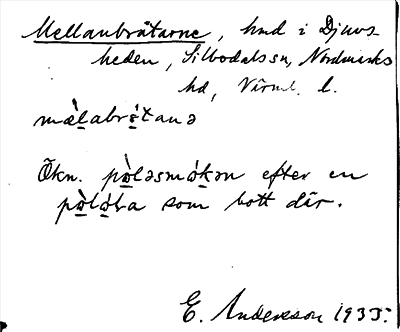 Mellanbråtarne, hmd i Djuvs
heden, Silbodals sn, Nordmarks
hd, Värml. l.
mæ̀labrǻtanə
Ökn. pö̀ləsmǻkən efter en
pö̀lǻka som bott där.
E. Andersson 1935.